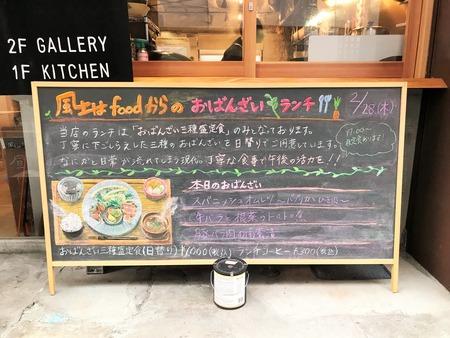 2F GALLERY
1F KITCHEN
風土はfoodからの おばんざいランチ
2/28(木)
当店のランチは「おばんざい三種盛定食」のみとなっております。
丁寧に下ごしらえした三種のおばんざいを日替りでご用意しています。
なにかと日常が流れてしまう現代。丁寧な食事で午後の活力を!!
17:00〜
本日のおばんざい
スパニッシュオムレツ
牛バラと根菜のトマト煮
おばんざい三種盛定食(日替り)¥1,000(税込) ランチコーヒー ¥300(税込)